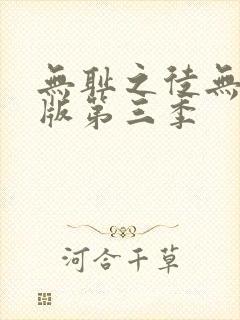 無耻之徒無
版第三季
河合千草